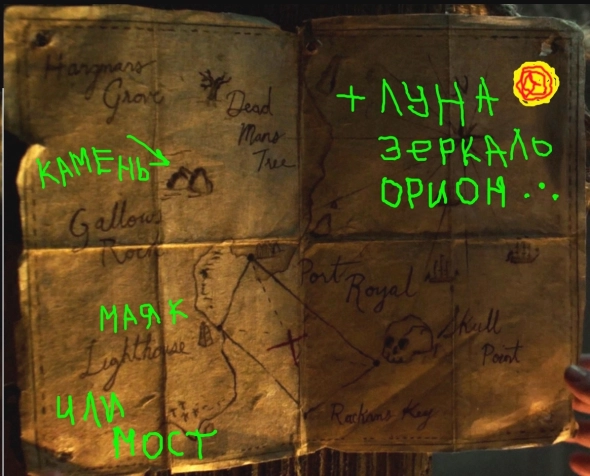 Hangmans
Grove
Dead
Mans
Tree
+ ЛУНА
ЗЕРКАЛЬО
ОРИОН
КАМЕНЬ
Gallows
Rock
Port
Royal
МАЯК
Lighthouse
Skull
Point
ИЛИ
МОСТ
Rackams Key